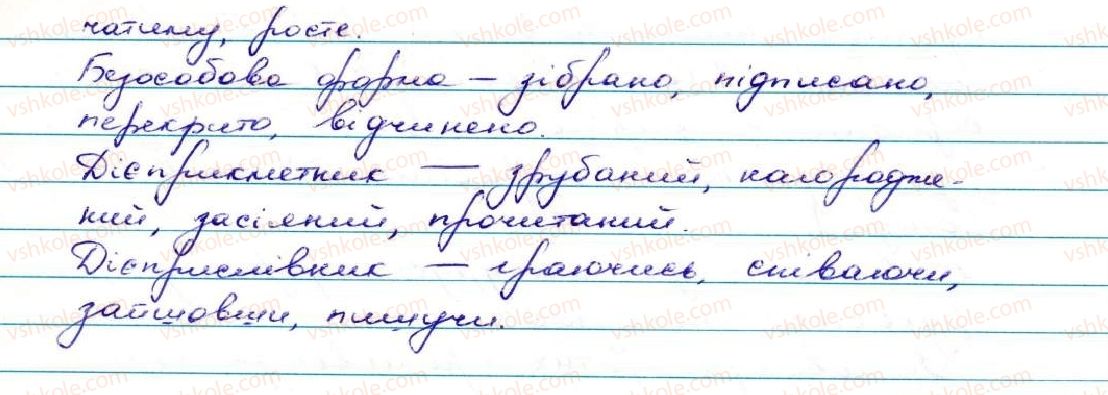 чатиму, росте.
Безособова форма – зібрано, підписано,
перекрито, відчинено.
Дієприкметник — зрубаний, нагородже-
ний, засіяний, прочитаний.
Дієприслівник — граючись, співаючи,
зайшовши, пишучи.